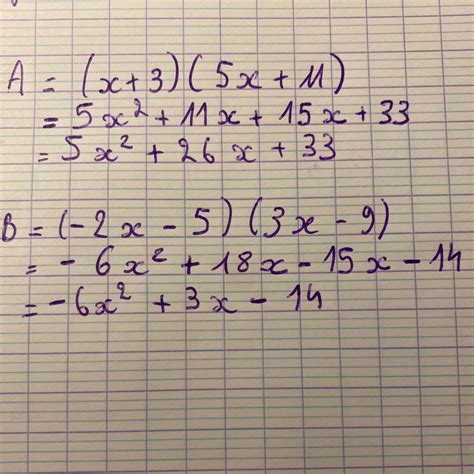 A = (x + 3) (5x + 11)
= 5x² + 11x + 15x + 33
= 5x² + 26x + 33
B = (-2x - 5) (3x - 9)
= - 6x² + 18x - 15x - 14
= -6x² + 3x - 14